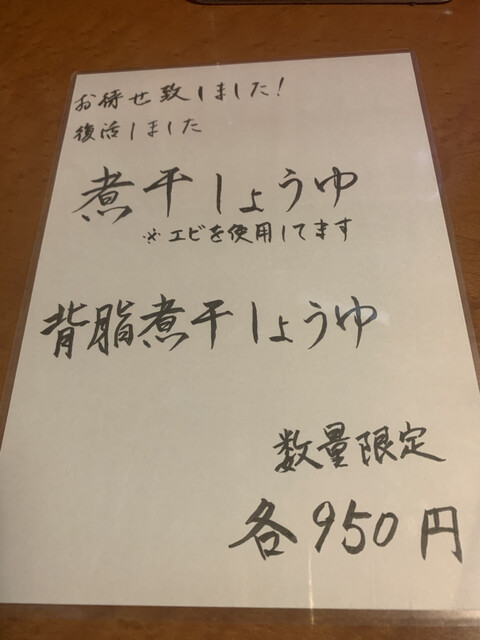 お待せ致しました!
復活しました
煮干しょうゆ
※エビを使用してます
背脂煮干しょうゆ
数量限定
各950円